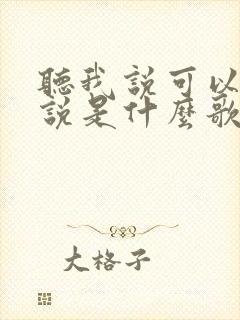 聽我説可以
説是什麼歌
大格子